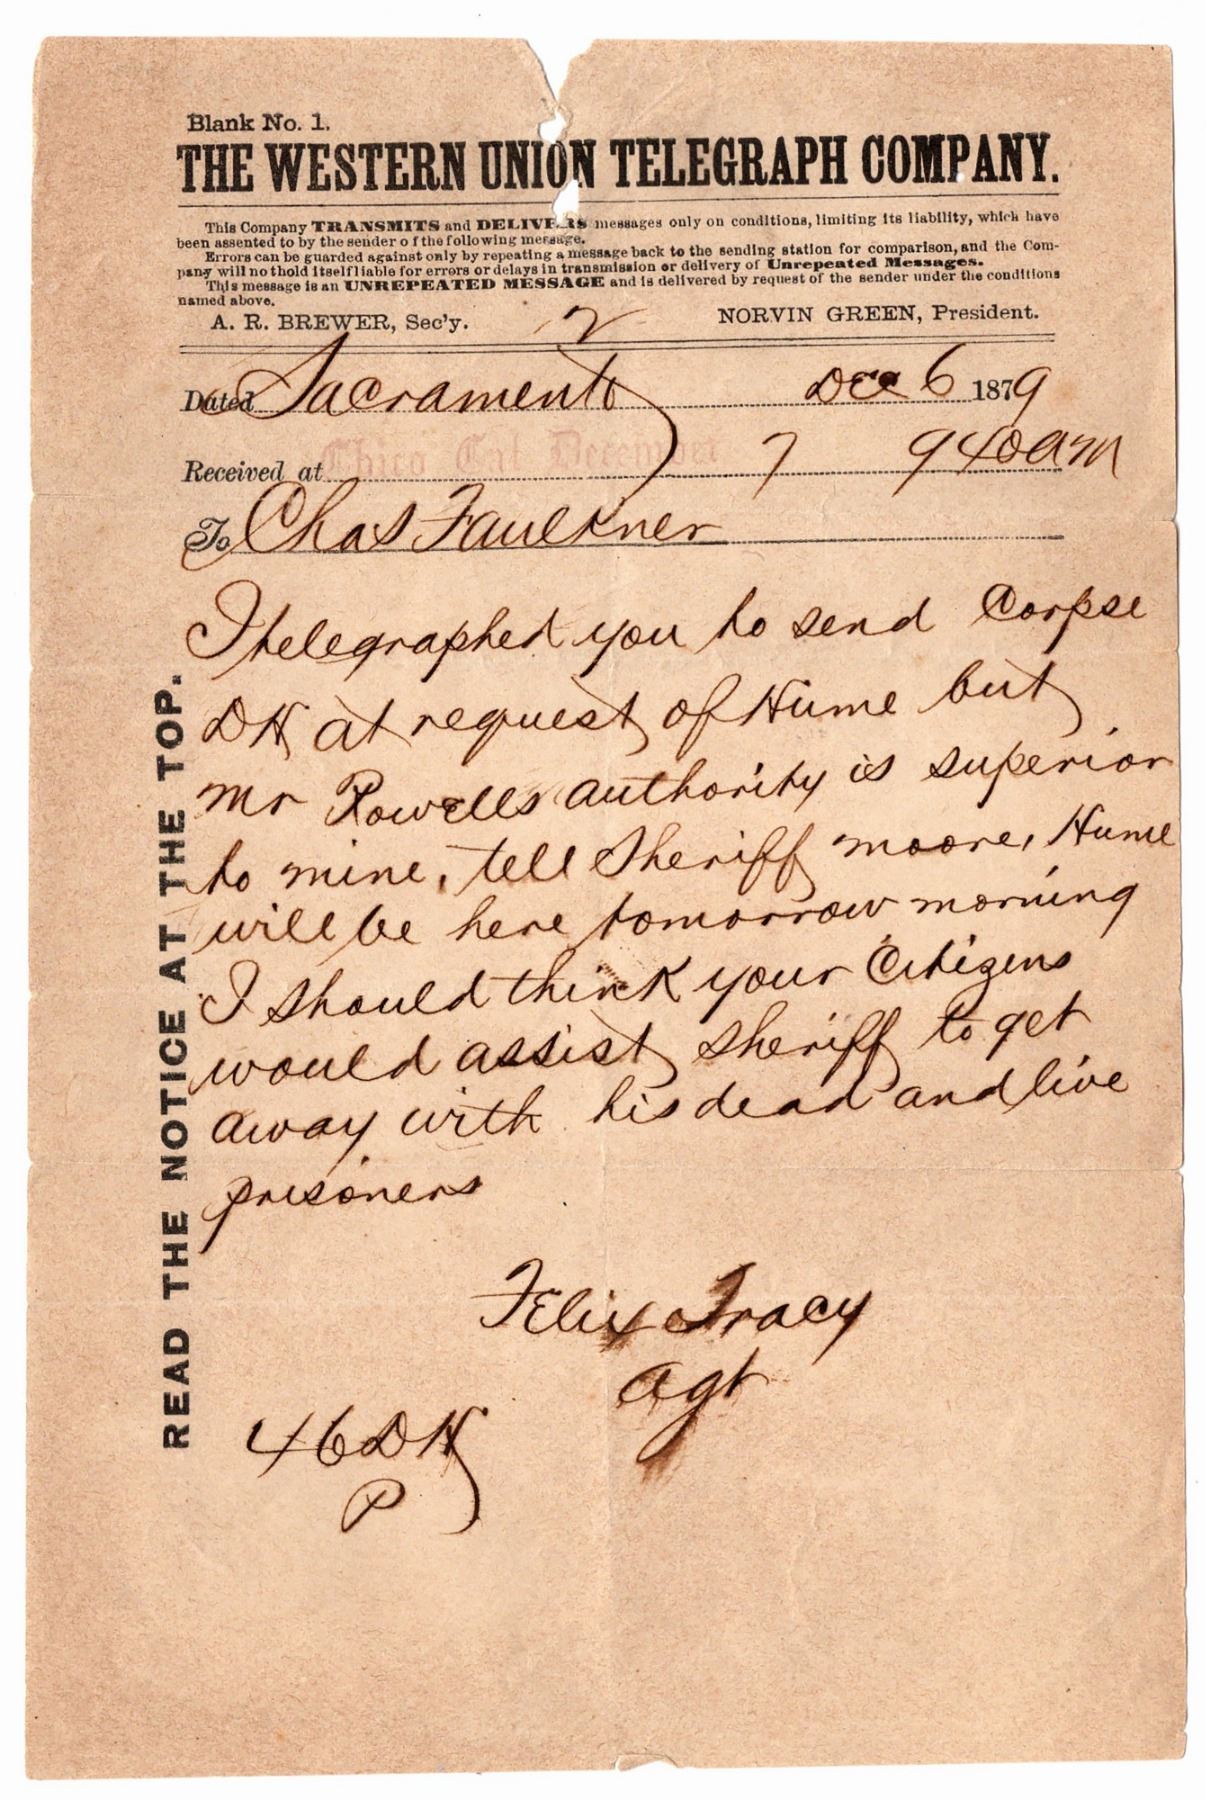 Blank No. 1.
THE WESTERN UNION TELEGRAPH COMPANY.
This Company TRANSMITS and DELIVERS messages only on conditions, limiting its liability, which have
been assented to by the sender of the following message.
Errors can be guarded against only by repeating a message back to the sending station for comparison, and the Com-
pany will not hold itself liable for errors or delays in transmission or delivery of Unrepeated Messages.
This message is an UNREPEATED MESSAGE and is delivered by request of the sender under the conditions
named above.
A. R. BREWER, Sec'y. 2 NORVIN GREEN, President.
Dated Sacramento Dec 6 1879
Received at Chico Cal December 7 940am
To Chas Faulkner
I telegraphed you to send Corpse
DH at request of Hume but
Mr Powells authority is superior
to mine, tell Sheriff moore, Hume
will be here tomorrow morning
I should think your Citizens
would assist sheriff to get
away with his dead and live
prisoners
Felix Tracy
Agt
46 DH
P
READ THE NOTICE AT THE TOP.